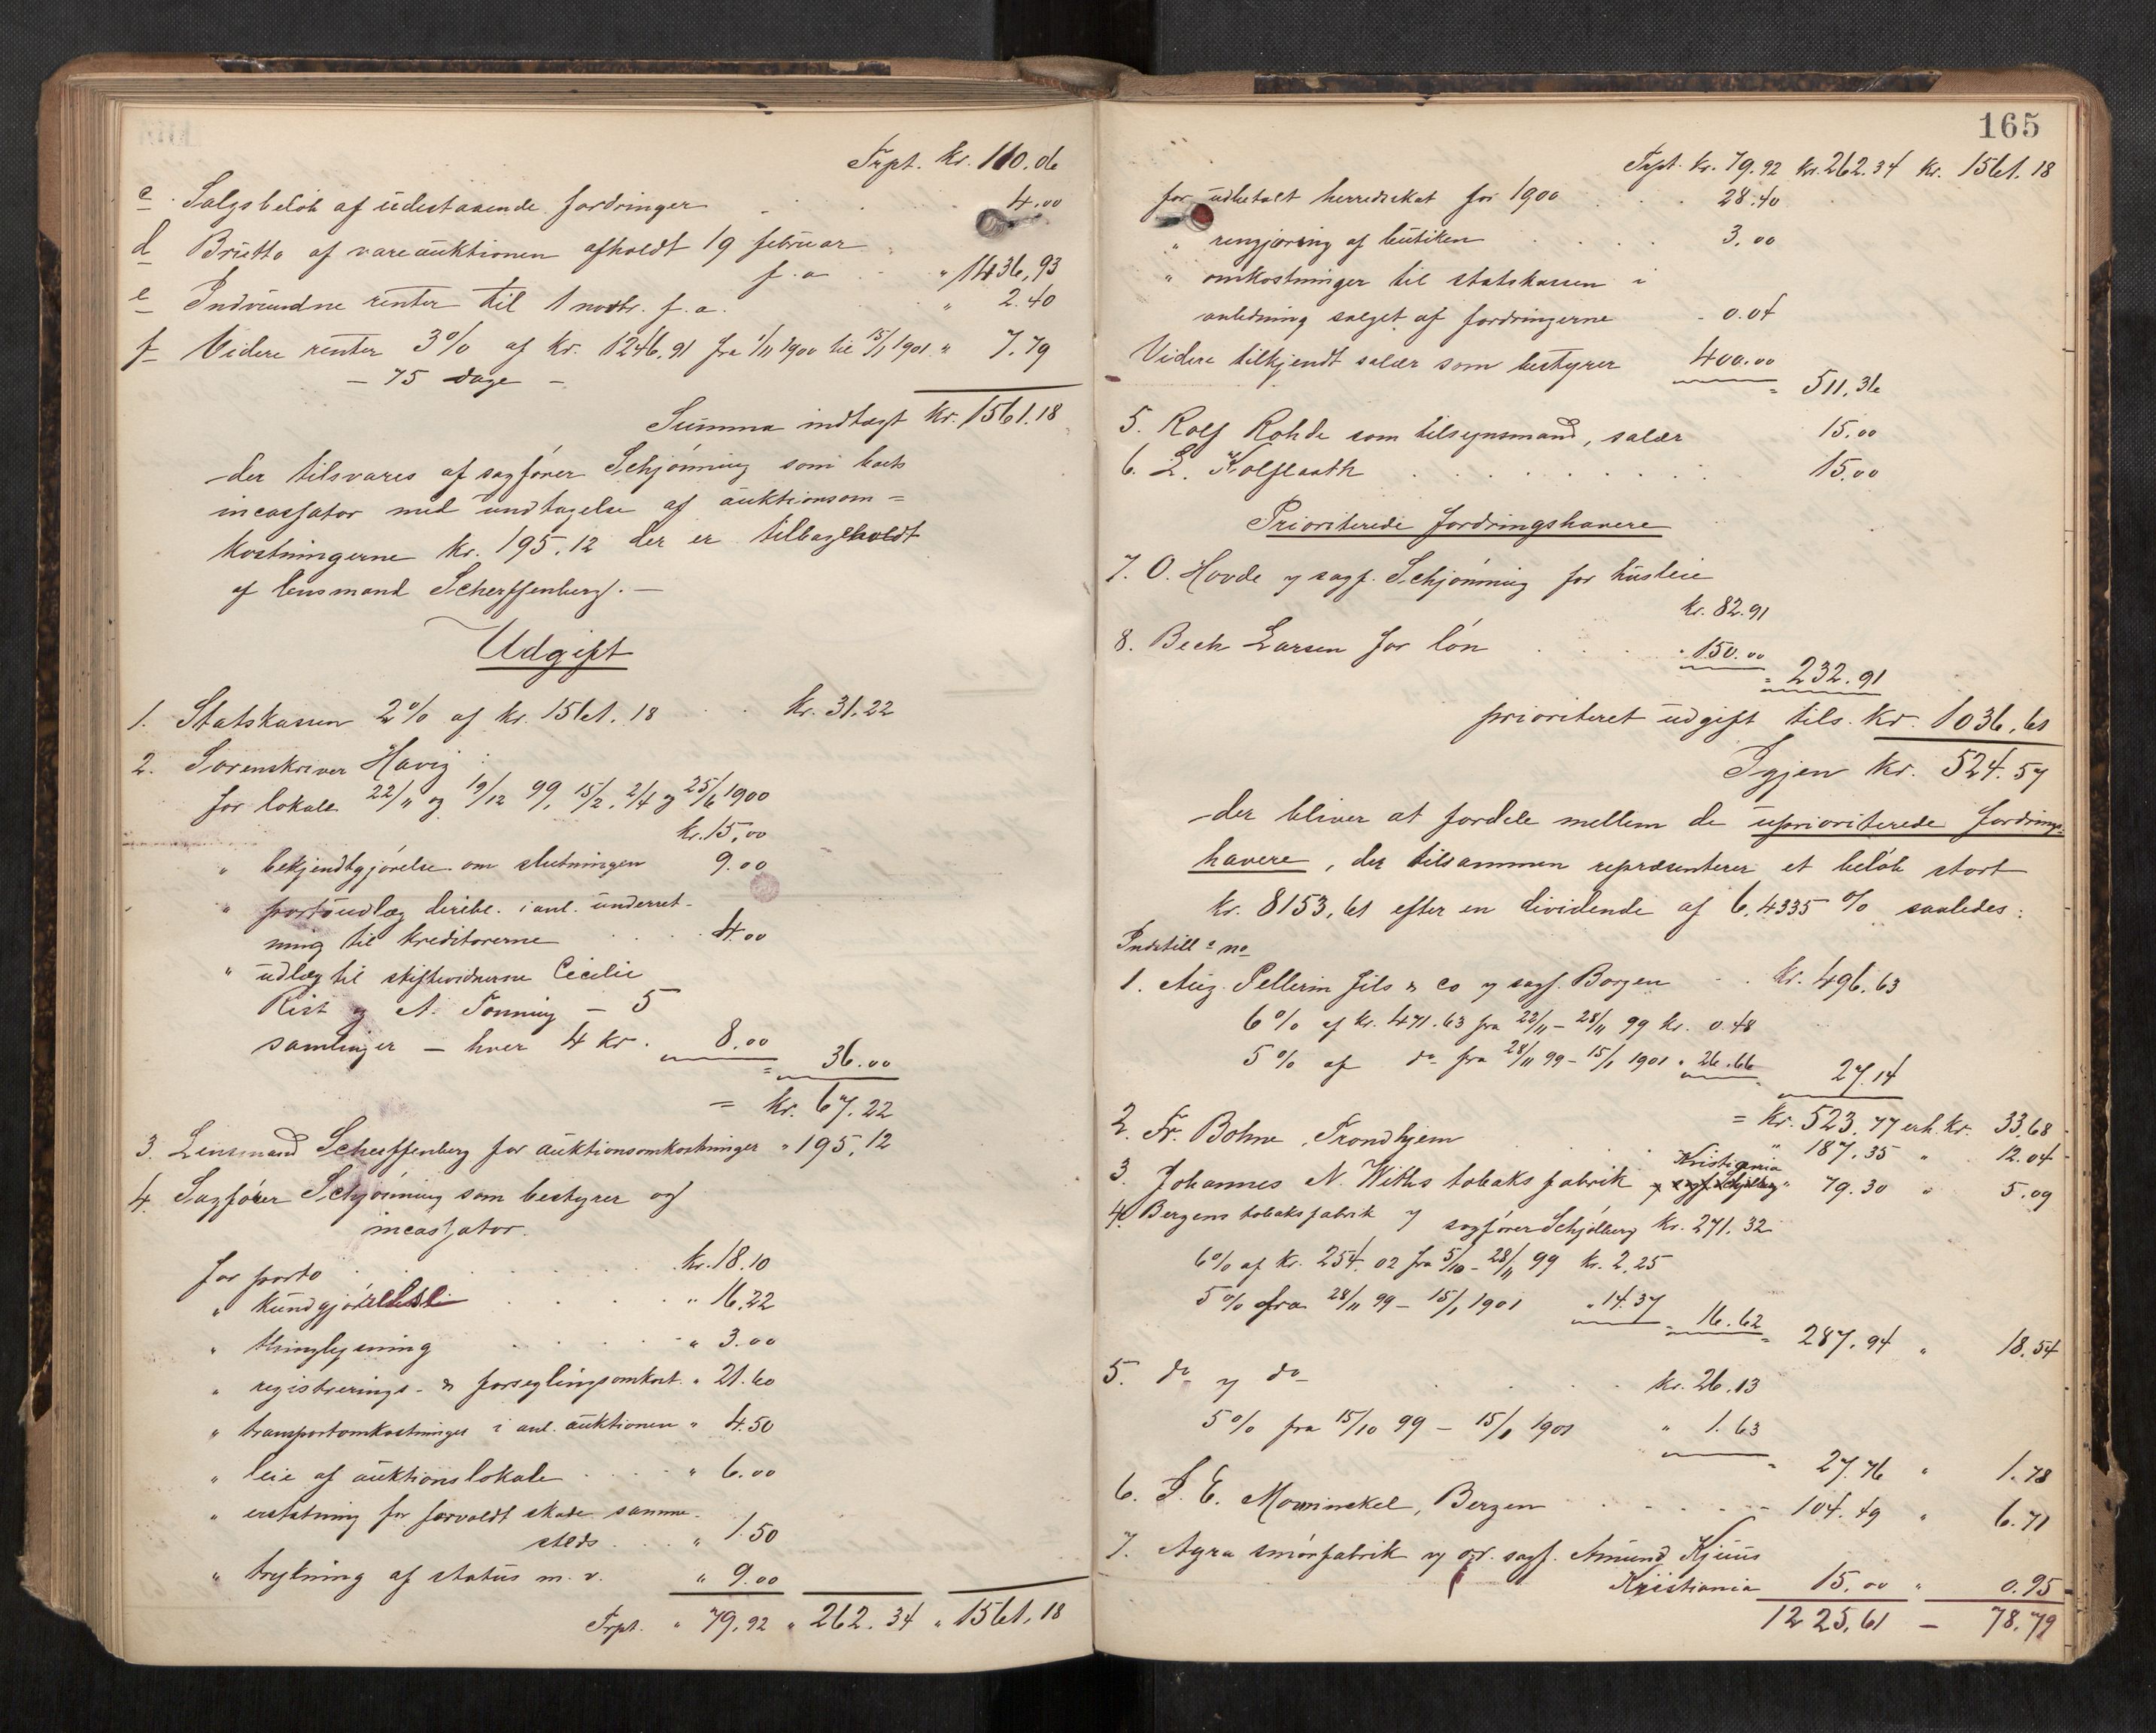 Trpt. kr. 110.06
c. Salgsbeløb af udestaaende fordringer . . . 4.00
d Brutto af vareauktionen afholdt 19 februar
f. a. . . " 1436,93
e Indvundne renter til 1 novbr. f. a. . " 2.40
f Videre renter 3% af kr. 1246,91 fra 1/11 1900 til 15/1 1901 " 7.79
– 75 dage –
Summa indtægt kr. 1561.18
der tilsvares af sagfører Schjønning som boets
incassator med undtagelse af auktionsom=
kostningerne kr. 195.12 der er tilbageholdt
af lensmand Scherffenberg. –
Udgift
1. Statskassen 2% af kr. 1561.18 . . kr. 31,22
2. Sorenskriver Havig :
for lokale 22/11 og 19/12 99, 15/2, 2/4 og 25/6 1900
kr. 15,00
" bekjendtgjørelse om slutningen 9.00
" portoudlæg deribl. i anl. underret-
ning til kreditorerne . . . 4.00
" udlæg til skiftevidnerne Cecilie
Rist og A. Tonning – 5
samlinger – hver 4 kr. 8.00 = 36.00
= kr. 67.22
3. Lensmand Scherffenberg for auktionsomkostninger " 195,12
4. Sagfører Schjønning som bestyrer og
incassator.
for porto . . . . . . kr. 18.10
" kundgjørelse . . . . " 16.22
" thinglysning . . . . " 3.00
" registrerings- & forseglingsomkost. " 21.60
" transportomkostninger i anl. auktionen " 4.50
" leie af auktionslokale . . . " 6.00
" erstatning for forvoldt skade samme-
steds . . . " 1.50
" trykning af status m. v. " 9.00
Trpt. " 79,92 " 262.34 " 1561,18
165
Trpt. kr. 79.92 kr. 262.34 kr. 1561.18
for udbetalt herredsskat for 1900 . . . 28.40
" rengjøring af butiken . . . . 3,00
" omkostninger til statskassen i
anledning salget af fordringerne - 0.04
Videre tilkjendt salær som bestyrer 400.00 = 511,36
5. Rolf Rohde som tilsynsmand, salær 15.00
6. L. Kolflaath . . . . . . . 15.00
Prioriterede fordringshavere
7. O. Hovde v sagf. Schjønning for husleie
kr. 82.91
8. Bech Larsen for løn . . . " 150.00 = 232.91
prioriteret udgift tils. kr. 1036,61
Igjen kr. 524.57
der bliver at fordele mellem de uprioriterede fordrings-
havere, der tilsammen repræsenterer et beløb stort
kr. 8153,61 efter en dividende af 6,4335 % saaledes:
Indstills no
1. Aug. Pellerin fils & co v sagf. Borgen . . kr. 496.63
6% af kr. 471.63 fra 22/11 – 28/11 99 kr. 0.48
5% af do fra 28/11 99 – 15/1 1901 " 26.66 27.14
= kr. 523.77 erh. kr. 33,68
2. Fr. Bohne, Trondhjem . . . " 187.35 " 12.04
3. Johannes N. Withs tobaksfabrik Kristiania " 79.30 " 5.09
4. Bergens tobaksfabrik v sagfører Schjølberg kr. 271.32
6% af kr. 254.02 fra 5/10 – 28/11 99 kr. 2.25
5% fra 28/11 99 – 15/1 1901 " 14.37 = 16.62 = 287,94 " 18.54
5. do v do . . . kr. 26.13
5% fra 15/10 99 – 15/1 1901 " 1.63
= 27.76 " 1.78
6. P. E. Mowinckel, Bergen . . . . . 104.49 " 6.71
7. Agra smørfabrik v or. sagf. Amund Kjuus
Kristiania 15.00 " 0.95
1225,61 – 78,79